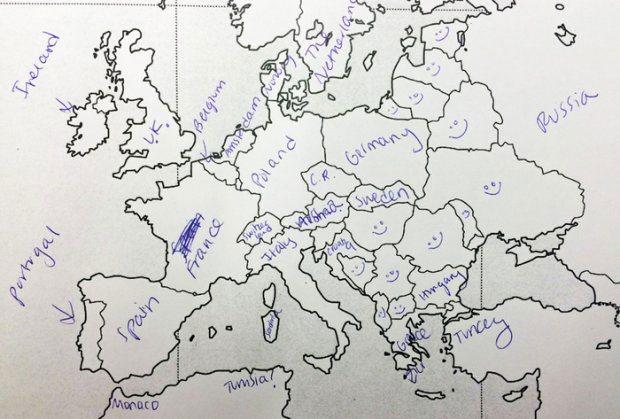 Ireland
U.K.
Belgium
Amsterdam
Norway
The
Netherland
Russia
Poland
Germany
C.R.
Sweden
Austria
France
Italy
Croatia
Hungary
Portugal
Spain
Greece
Turkey
Tunisia?
Monaco